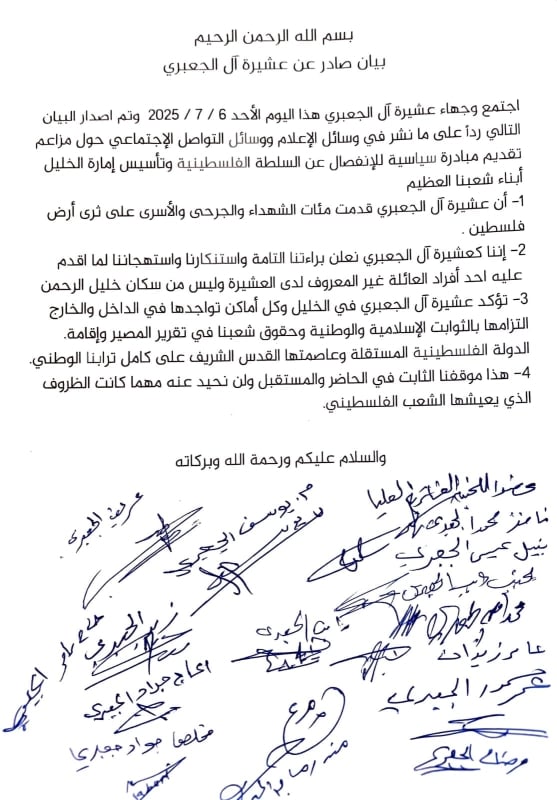 بسم الله الرحمن الرحيم
بيان صادر عن عشيرة آل الجعبري
اجتمع وجهاء عشيرة آل الجعبري هذا اليوم الأحد 6 / 7 / 2025 وتم اصدار البيان
التالي رداً على ما نشر في وسائل الإعلام ووسائل التواصل الإجتماعي حول مزاعم
تقديم مبادرة سياسية للإنفصال عن السلطة الفلسطينية وتأسيس إمارة الخليل
أبناء شعبنا العظيم
1- أن عشيرة آل الجعبري قدمت مئات الشهداء والجرحى والأسرى على ثرى أرض
فلسطين .
2- إننا كعشيرة آل الجعبري نعلن براءتنا التامة واستنكارنا واستهجاننا لما اقدم
عليه احد أفراد العائلة غير المعروف لدى العشيرة وليس من سكان خليل الرحمن
3- تؤكد عشيرة آل الجعبري في الخليل وكل أماكن تواجدها في الداخل والخارج
التزامها بالثوابت الإسلامية والوطنية وحقوق شعبنا في تقرير المصير وإقامة.
الدولة الفلسطينية المستقلة وعاصمتها القدس الشريف على كامل ترابنا الوطني.
4- هذا موقفنا الثابت في الحاضر والمستقبل ولن نحيد عنه مهما كانت الظروف
الذي يعيشها الشعب الفلسطيني.
والسلام عليكم ورحمة الله وبركاته
م. يوسف الجعبري
نبيل عيسى الجعبري
الحاج جواد الجعبري
الجعبري